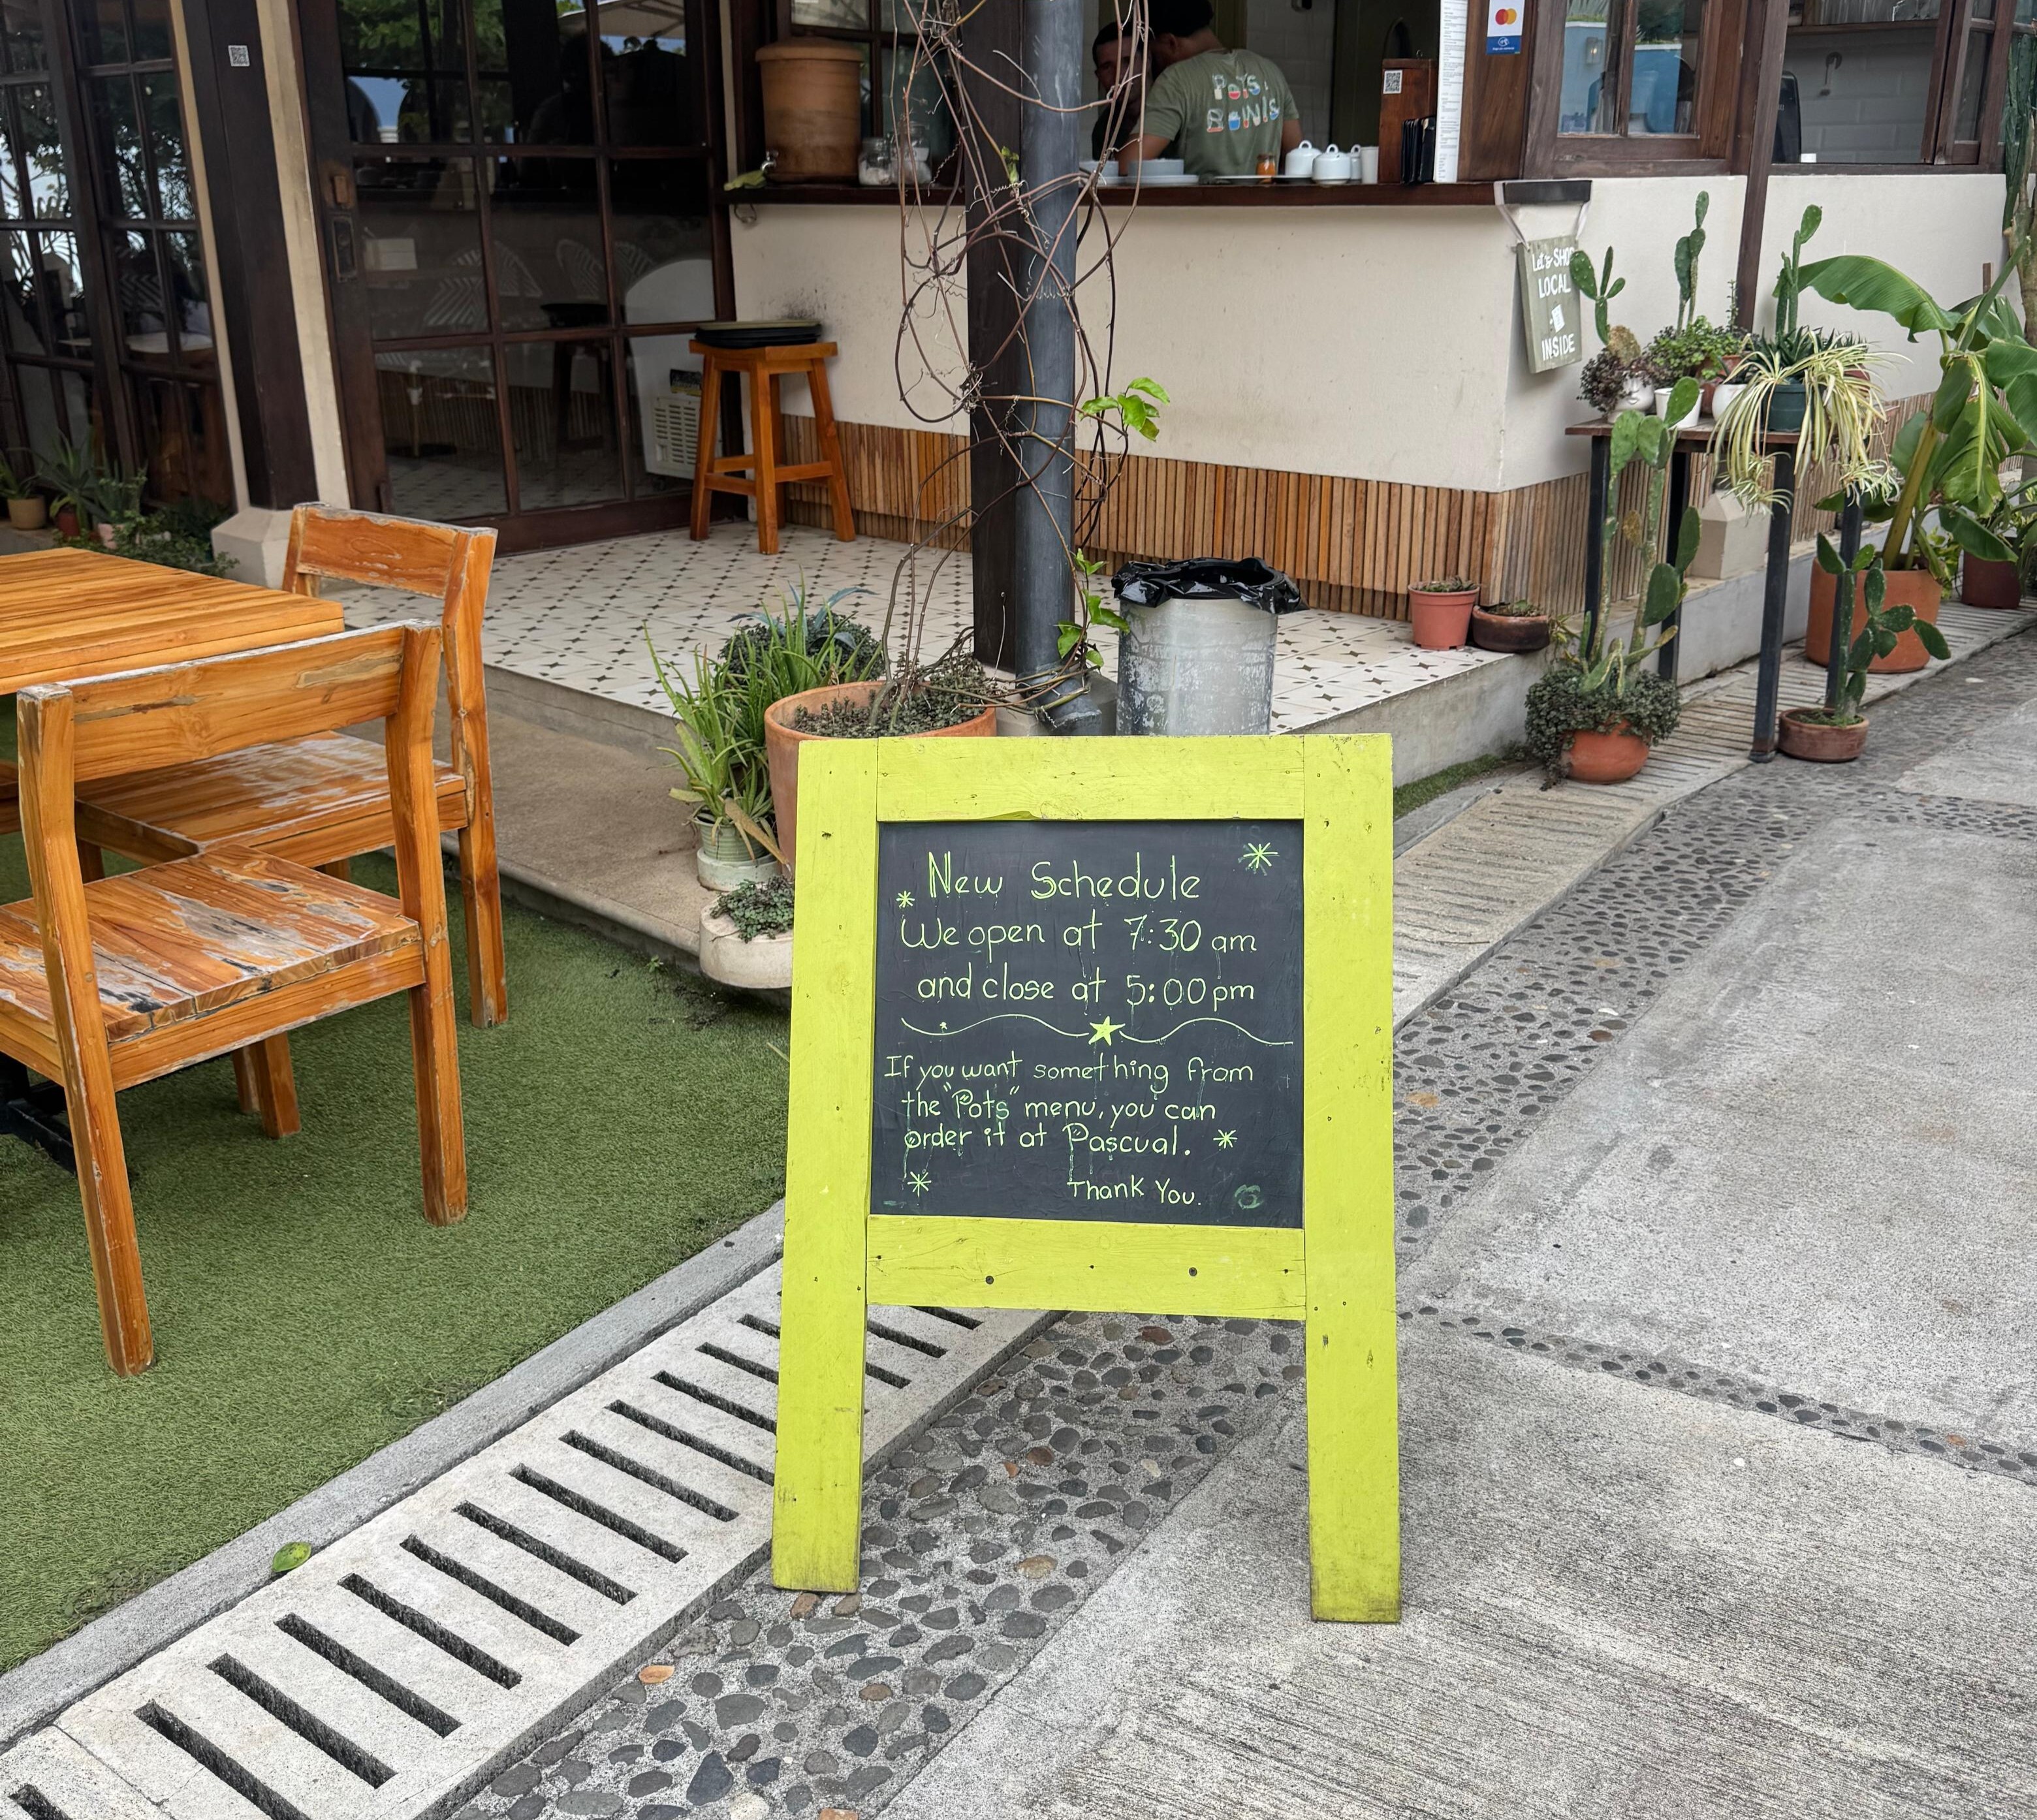 POTS &
BOWLS
Let's SHOP
LOCAL
INSIDE
New Schedule
We open at 7:30 am
and close at 5:00 pm
If you want something from
the "Pots" menu, you can
order it at Pascual.
Thank You.